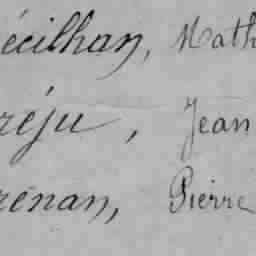 écilhan, Math
réju, Jean
renan, Pierre